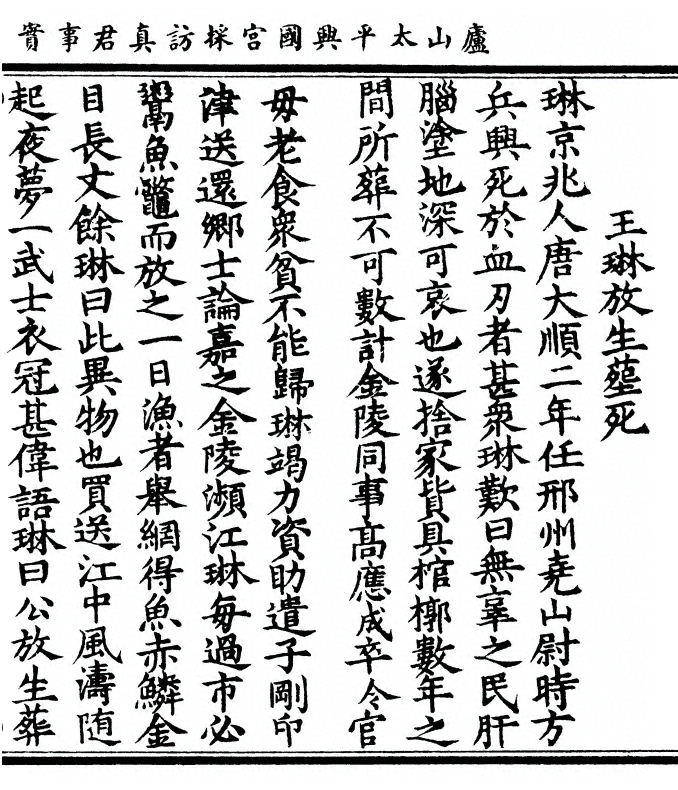 廬山太平興國宮採訪真君事實
王琳放生葬死
琳京兆人唐大順二年任邢州堯山尉時方
兵興死於血刃者甚衆琳歎曰無辜之民肝
腦塗地深可哀也遂捨家貲具棺槨數年之
間所葬不可數計金陵同事高應成卒令官
毋老食衆貧不能歸琳竭力資助遣子剛印
津送還鄉士論嘉之金陵瀕江琳每過市必
鬻魚鼈而放之一日漁者舉網得魚赤鱗金
目長丈餘琳曰此異物也買送江中風濤随
起夜夢一武士衣冠甚偉語琳曰公放生葬